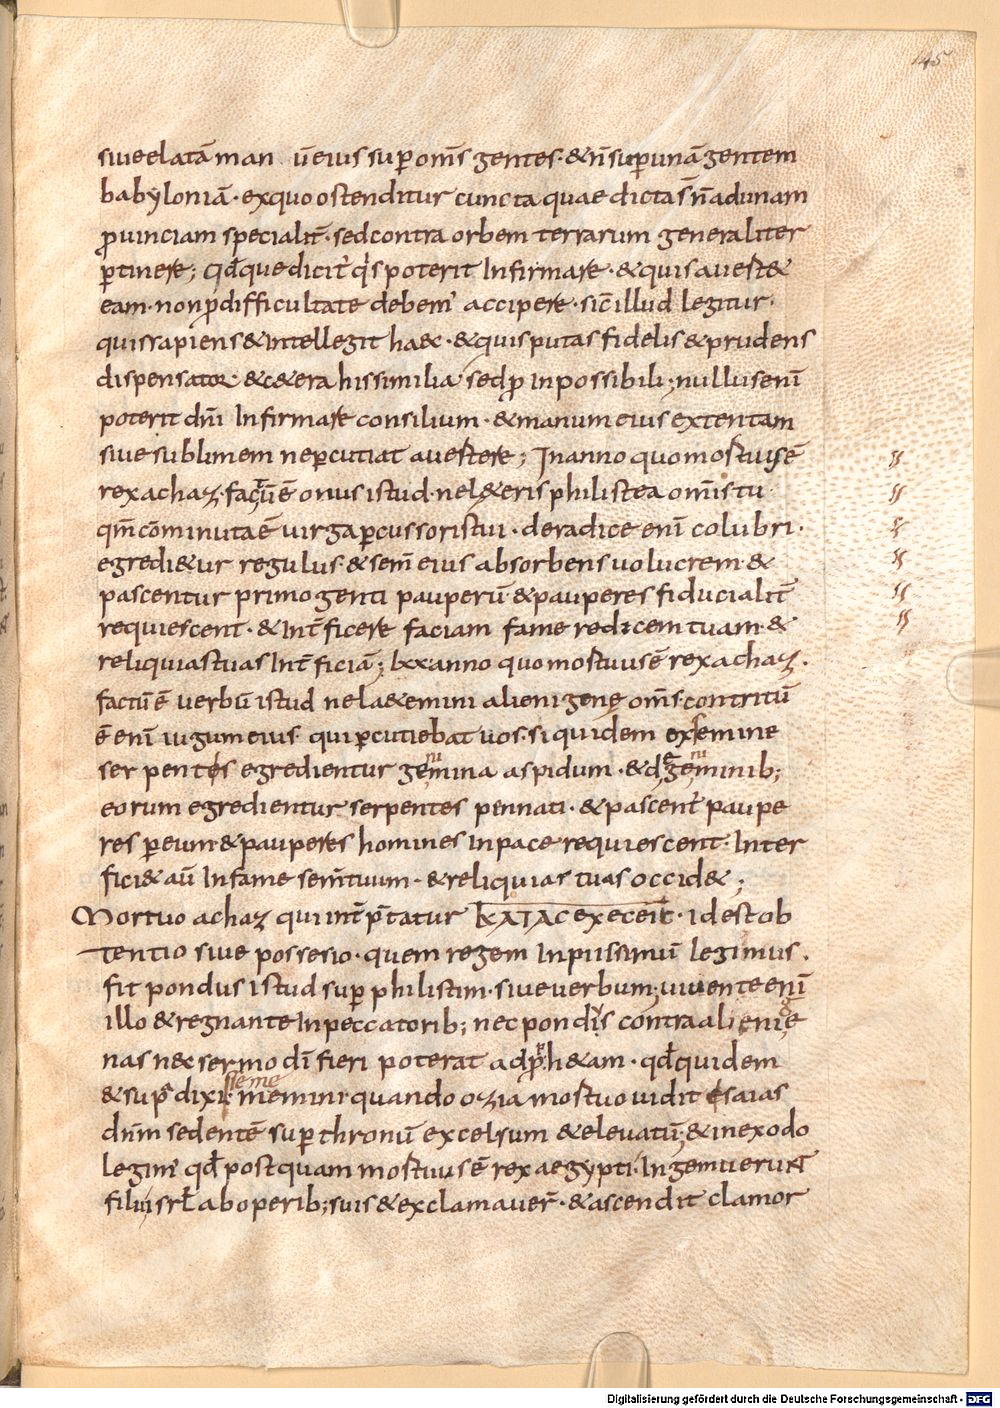 145
siue elatā man ūeius sup om̄s gentes · & n̄ sup unā gentem
babyloniā · exquo ostenditur cuncta quae dicta s̄ n̄ ad unam
ꝓuinciam specialit̄ · sed contra orbem terrarum generaliter
ꝑtinere ; Qđque dicit' q's poterit Infirmare · & quis auest&
eam · non ꝓ difficultate debem' accipere · sic̄ illud legitur ·
quis sapiens & Intellegit haec · & quis putas fidelis & prudens
dispensator · & c&era his similia sed ꝓ Inpossibili ; nullus enī
poterit dn̄i Infirmare consilium · & manum eius extentam
siue sublimem ne ꝑcutiat auestere ; In anno quo mostuus ē
rex achaz · factū ē onus istud · ne l&eris philistea om̄is tu
qm̄ cōminuta ē uirga ꝑcussoris tui · de radice enī colubri ·
egredi&ur regulus · & sem̄ eius absorbens uolucrem · &
pascentur primogeniti pauperū & pauperes fiducialit̄
requiescent · & Int̄ficere faciam fame redicem tuam · &
reliquias tuas Int̄ficiā ; lxx anno quo mostuus ē rex achaz ·
factū ē uerbū istud ne la&emini alienigene om̄s · contritū
ē enī iugum eius qui ꝑcutiebat uos · siquidem ex semine
serpentes egredientur gemina aspidum · & de geminib;
eorum egredientur serpentes pennati · & pascent' paupe
res ꝑ eum · & pauperes homines in pace requiescent · Inter
fici& aū In fame sem̄ tuum · & reliquias tuas occid& ;
Mortuo achaz qui int̄p̄tatur ΚΑΤΑϹ execeιϲ · id est ob
tentio siue possesio · quem regem Inpiissimū legimus ·
fit pondus istud sup philistim · siue uerbum ; uiuente enī
illo & regnante In peccatorib; nec pondus contra alienige
nas nec sermo dī fieri poterat ad ꝓph&am · qđ quidem
& sup dixisse me memini · quando ozia mostuo uidit esaias
dn̄m sedentē sup thronū excelsum & eleuatū ; & in exodo
legim' qđ postquam mostuus ē rex aegypti · Ingemuerunt
filii isrł ab operib; suis & exclamauer̄ · & ascendit clamor
Digitalisierung gefördert durch die Deutsche Forschungsgemeinschaft - DFG